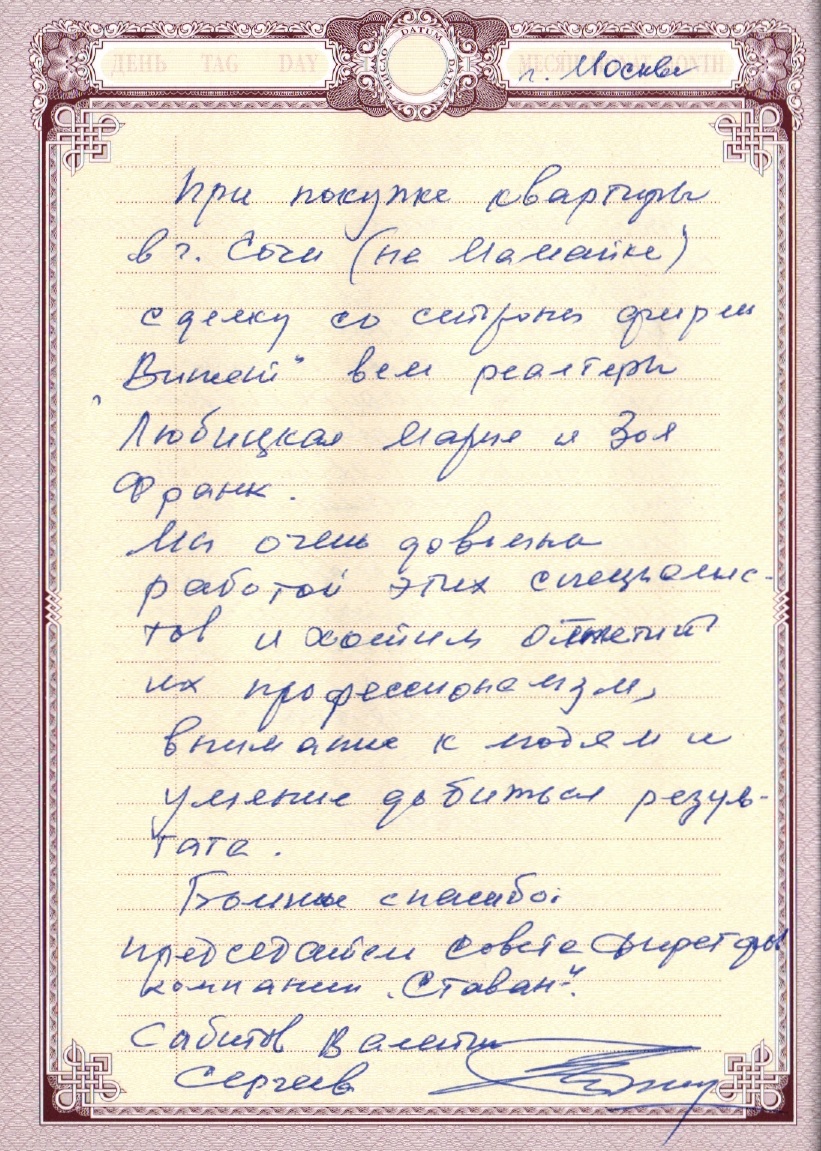 ДЕНЬ TAG DAY
ЧИСЛО DATUM DATE
г. Москва
При покупке квартиры
в г. Сочи (на Мамайке)
сделку со стороны фирмы
„Винсент“ вели риэлтеры
Любицкая Мария и Зоя
Франк.
Мы очень довольны
работой этих специалис-
тов и хотим отметить
их профессионализм,
внимание к людям и
умение добиться резуль-
тата.
Большое спасибо!
Председатель совета директоров
компании „Ставан“.
Сабитов Валентин
Сергеев